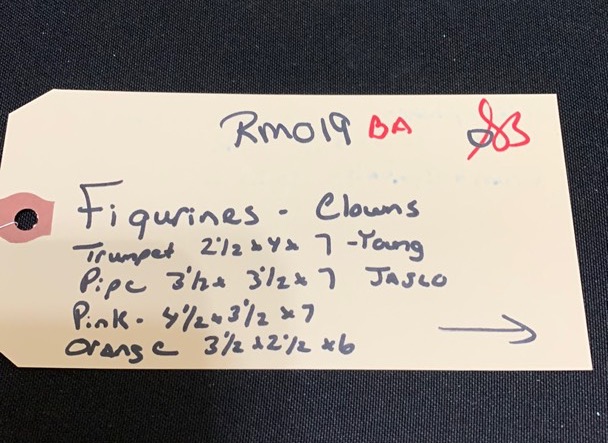 RMO19 BA
Figurines - Clowns
Trumpet 2 1/2 x 4 x 7 - Young
Pipe 3 1/2 x 3 1/2 x 7 JASCO
Pink - 4 1/2 x 3 1/2 x 7
Orange 3 1/2 x 2 1/2 x 6